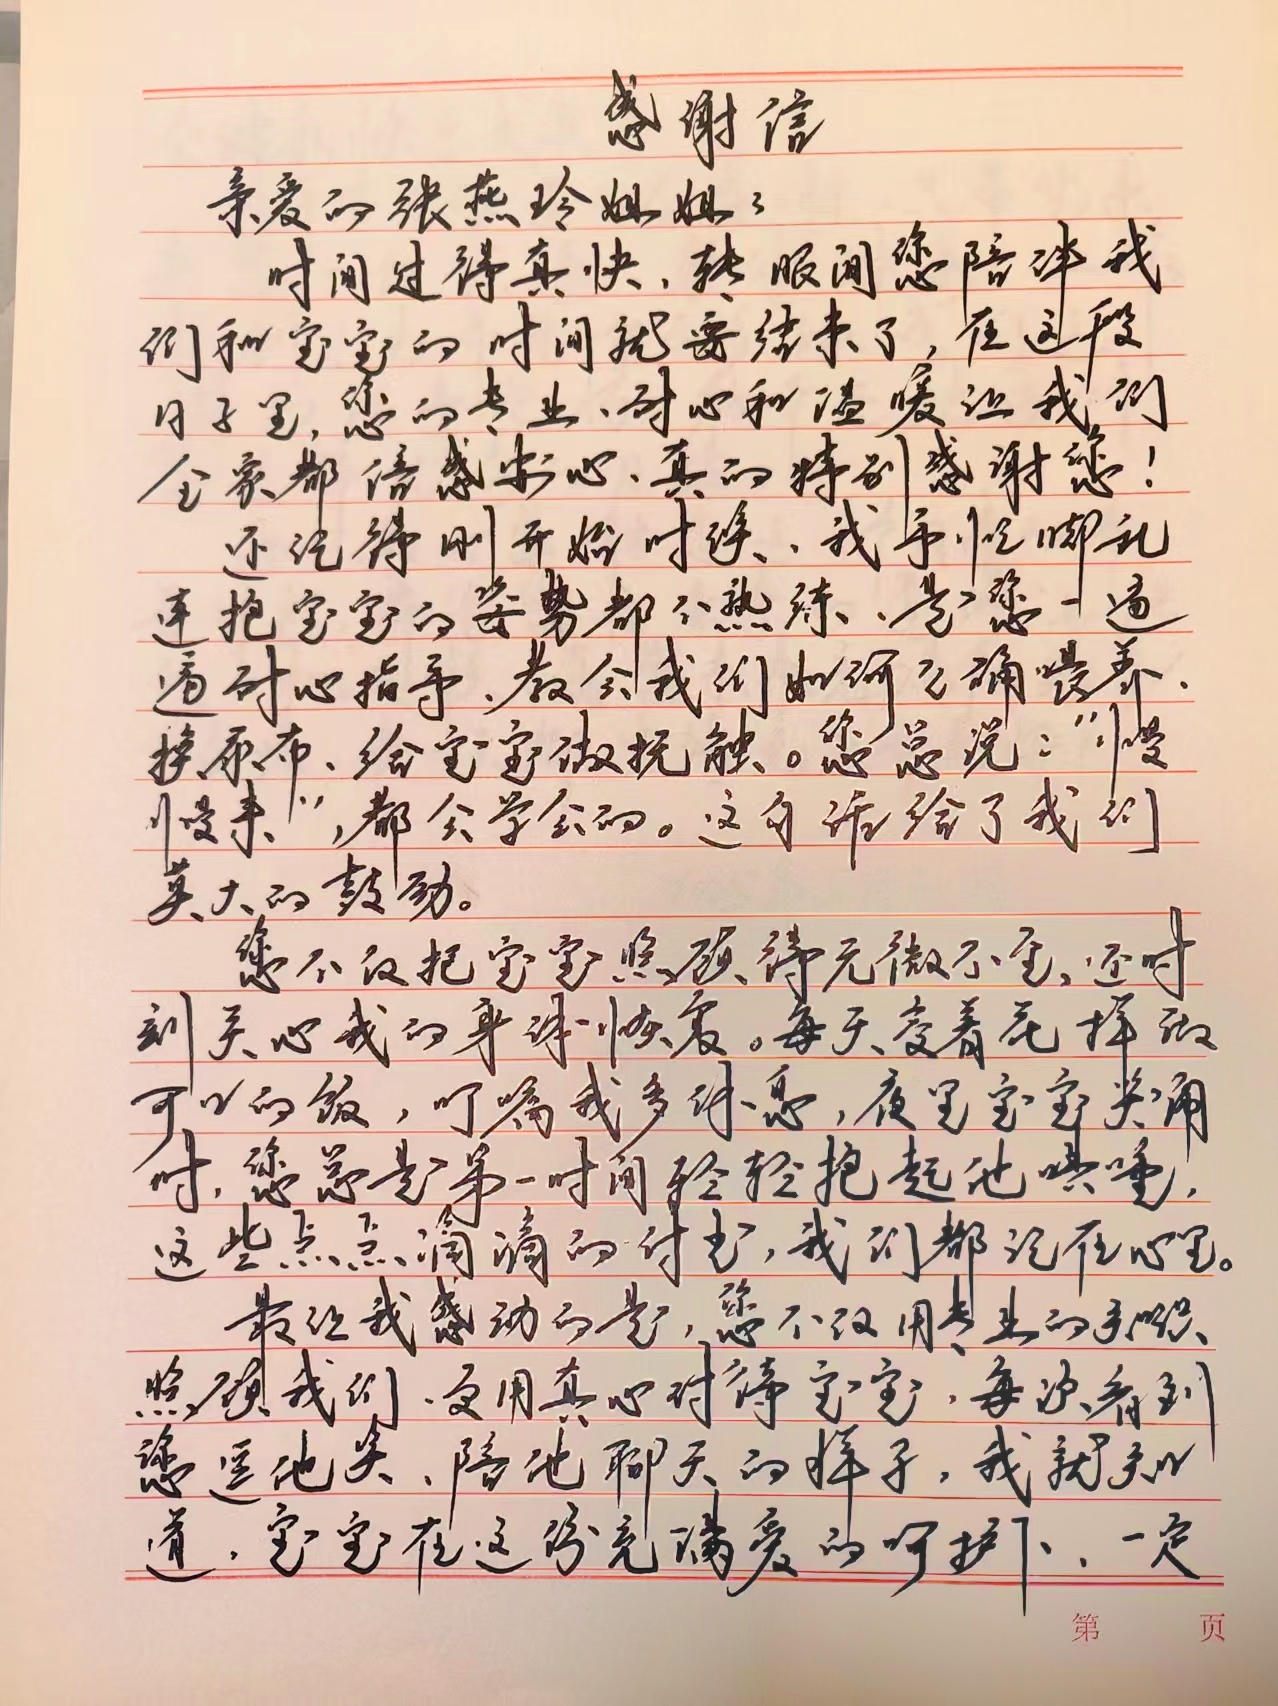 感谢信
亲爱的张燕玲姐姐:
时间过得真快,转眼间您陪伴我
们和宝宝的时间就要结束了,在这段
日子里,您的专业、耐心和温暖让我们
全家都倍感安心、真的特别感谢您!
还记得刚开始时候、我手忙脚乱
连抱宝宝的姿势都不熟练、是您一遍
遍耐心指导、教会我们如何正确喂养、
换尿布、给宝宝做抚触。您总说:“慢
慢来”,都会学会的。这句话给了我们
莫大的鼓励。
您不仅把宝宝照顾得无微不至、还时
刻关心我的身体恢复。每天变着花样做
可以的饭,叮嘱我多休息,夜里宝宝哭闹
时,您总是第一时间轻轻抱起他哄睡,
这些点点滴滴的付出,我们都记在心里。
最让我感动的是,您不仅用专业的知识
照顾我们、更用真心对待宝宝,每次看到
您逗他笑、陪他聊天的样子,我就知
道,宝宝在这份充满爱的呵护下、一定
第 页